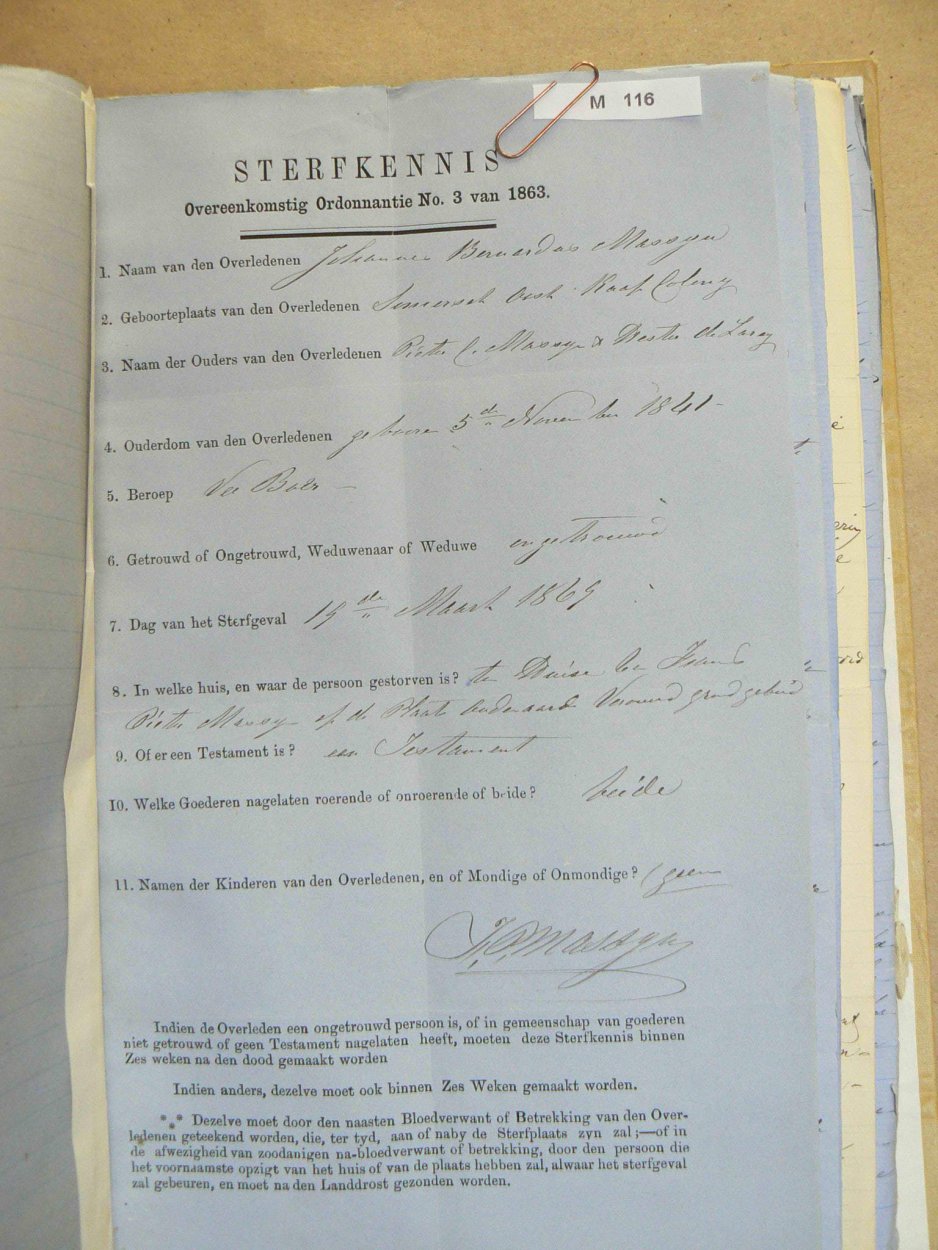 M 116
STERFKENNIS
Overeenkomstig Ordonnantie No. 3 van 1863.
1. Naam van den Overledenen Johannes Bernardus Massyn
2. Geboorteplaats van den Overledenen Somerset Oost Kaap Colony
3. Naam der Ouders van den Overledenen Pieter C. Massyn & Hester de Larey
4. Ouderdom van den Overledenen geboren 5de November 1841
5. Beroep Vee Boer
6. Getrouwd of Ongetrouwd, Weduwenaar of Weduwe ongetrouwd
7. Dag van het Sterfgeval 19de Maart 1869
8. In welke huis, en waar de persoon gestorven is? ten Huise
Pieter Massyn op de Plaats grond gebied
9. Of er een Testament is? een Testament
10. Welke Goederen nagelaten roerende of onroerende of beide? beide
11. Namen der Kinderen van den Overledenen, en of Mondige of Onmondige? geen
Massyn
Indien de Overleden een ongetrouwd persoon is, of in gemeenschap van goederen
niet getrouwd of geen Testament nagelaten heeft, moeten deze Sterfkennis binnen
Zes weken na den dood gemaakt worden
Indien anders, dezelve moet ook binnen Zes Weken gemaakt worden.
*⁎* Dezelve moet door den naasten Bloedverwant of Betrekking van den Over-
ledenen geteekend worden, die, ter tyd, aan of naby de Sterfplaats zyn zal;—of in
de afwezigheid van zoodanigen na-bloedverwant of betrekking, door den persoon die
het voornaamste opzigt van het huis of van de plaats hebben zal, alwaar het sterfgeval
zal gebeuren, en moet na den Landdrost gezonden worden.